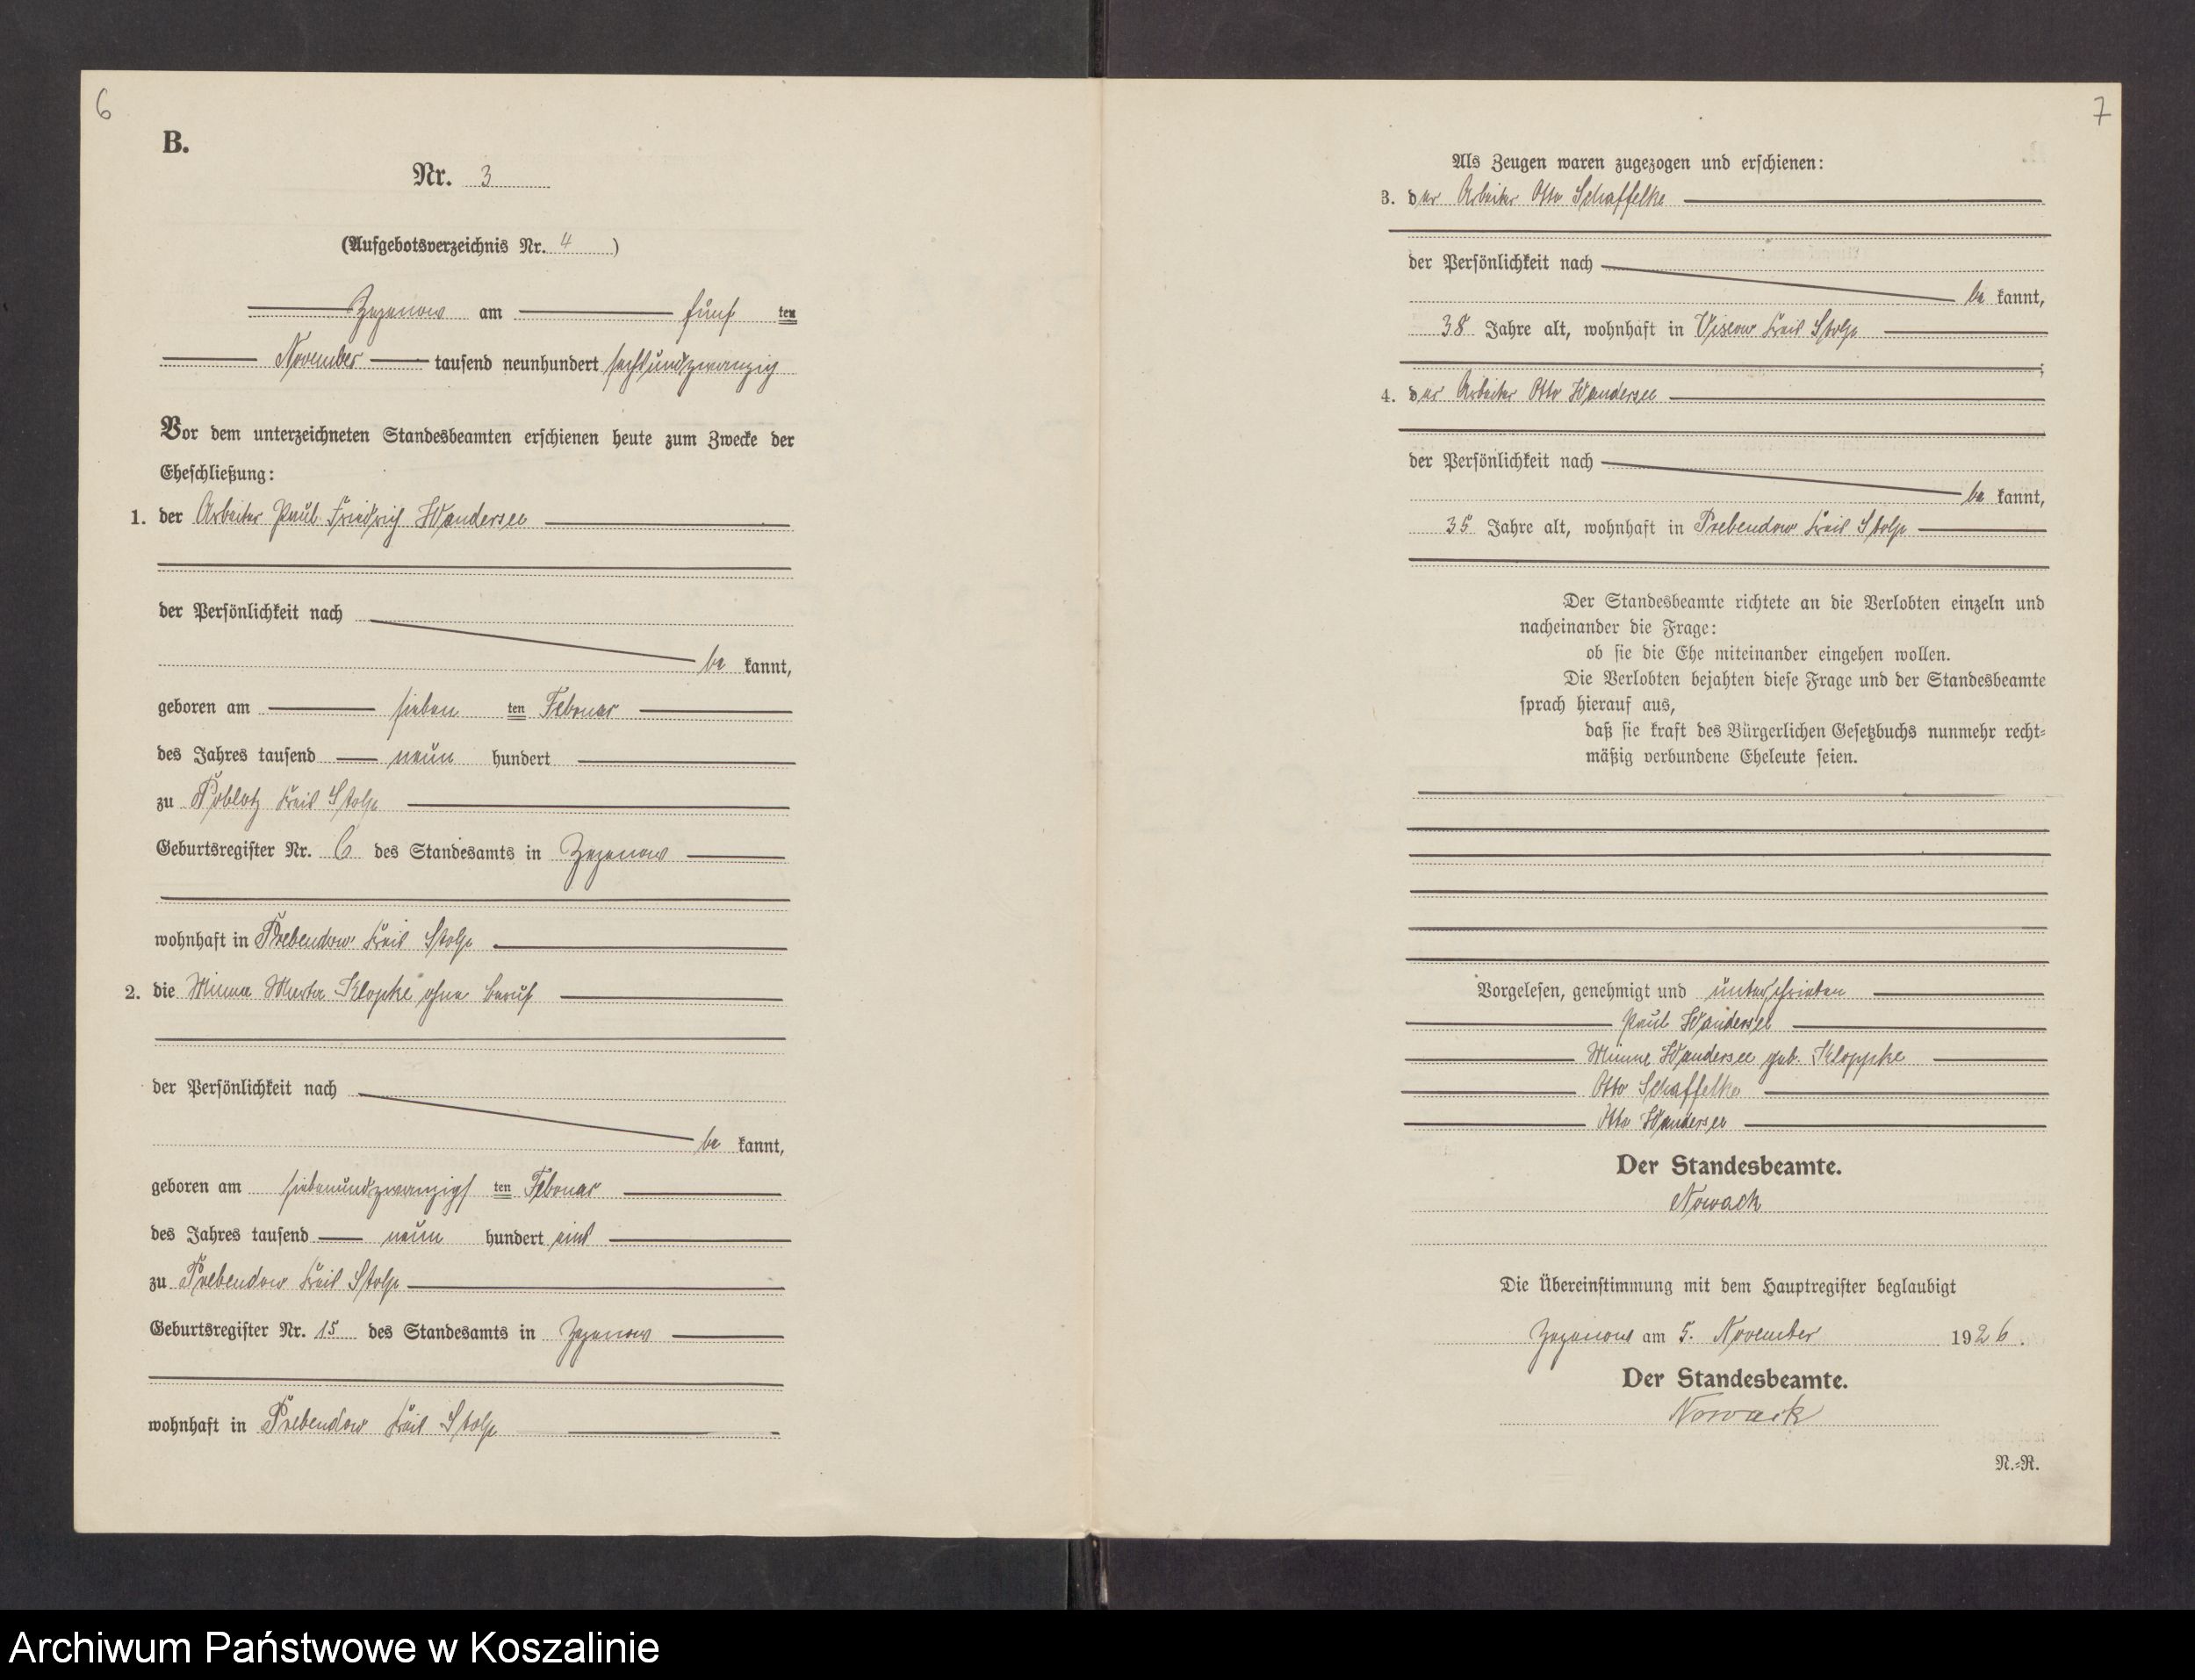 6
B.
Nr. 3
(Aufgebotsverzeichnis Nr. 4)
Zezenow am fünf ten
November tausend neunhundert sechsundzwanzig
Vor dem unterzeichneten Standesbeamten erschienen heute zum Zwecke der
Eheschließung:
1. der Arbeiter Paul Friedrich Wandersee
der Persönlichkeit nach
be kannt,
geboren am sieben ten Februar
des Jahres tausend neun hundert
zu Poblotz Kreis Stolp
Geburtsregister Nr. 6 des Standesamts in Zezenow
wohnhaft in Prebendow Kreis Stolp
2. die Minna Martha Klopke ohne Beruf
der Persönlichkeit nach
be kannt,
geboren am siebenundzwanzigs ten Februar
des Jahres tausend neun hundert eins
zu Prebendow Kreis Stolp
Geburtsregister Nr. 15 des Standesamts in Zezenow
wohnhaft in Prebendow Kreis Stolp
7
Als Zeugen waren zugezogen und erschienen:
3. der Arbeiter Otto Schaffelke
der Persönlichkeit nach
be kannt,
38 Jahre alt, wohnhaft in Viscow Kreis Stolp
;
4. der Arbeiter Otto Wandersee
der Persönlichkeit nach
be kannt,
35 Jahre alt, wohnhaft in Prebendow Kreis Stolp
Der Standesbeamte richtete an die Verlobten einzeln und
nacheinander die Frage:
ob sie die Ehe miteinander eingehen wollen.
Die Verlobten bejahten diese Frage und der Standesbeamte
sprach hierauf aus,
daß sie kraft des Bürgerlichen Gesetzbuchs nunmehr recht-
mäßig verbundene Eheleute seien.
Vorgelesen, genehmigt und unterschrieben
Paul Wandersee
Minna Wandersee geb. Kloppke
Otto Schaffelke
Otto Wandersee
Der Standesbeamte.
Nowack
Die Übereinstimmung mit dem Hauptregister beglaubigt
Zezenow am 5. November 1926.
Der Standesbeamte.
Nowack
N.-R.
Archiwum Państwowe w Koszalinie